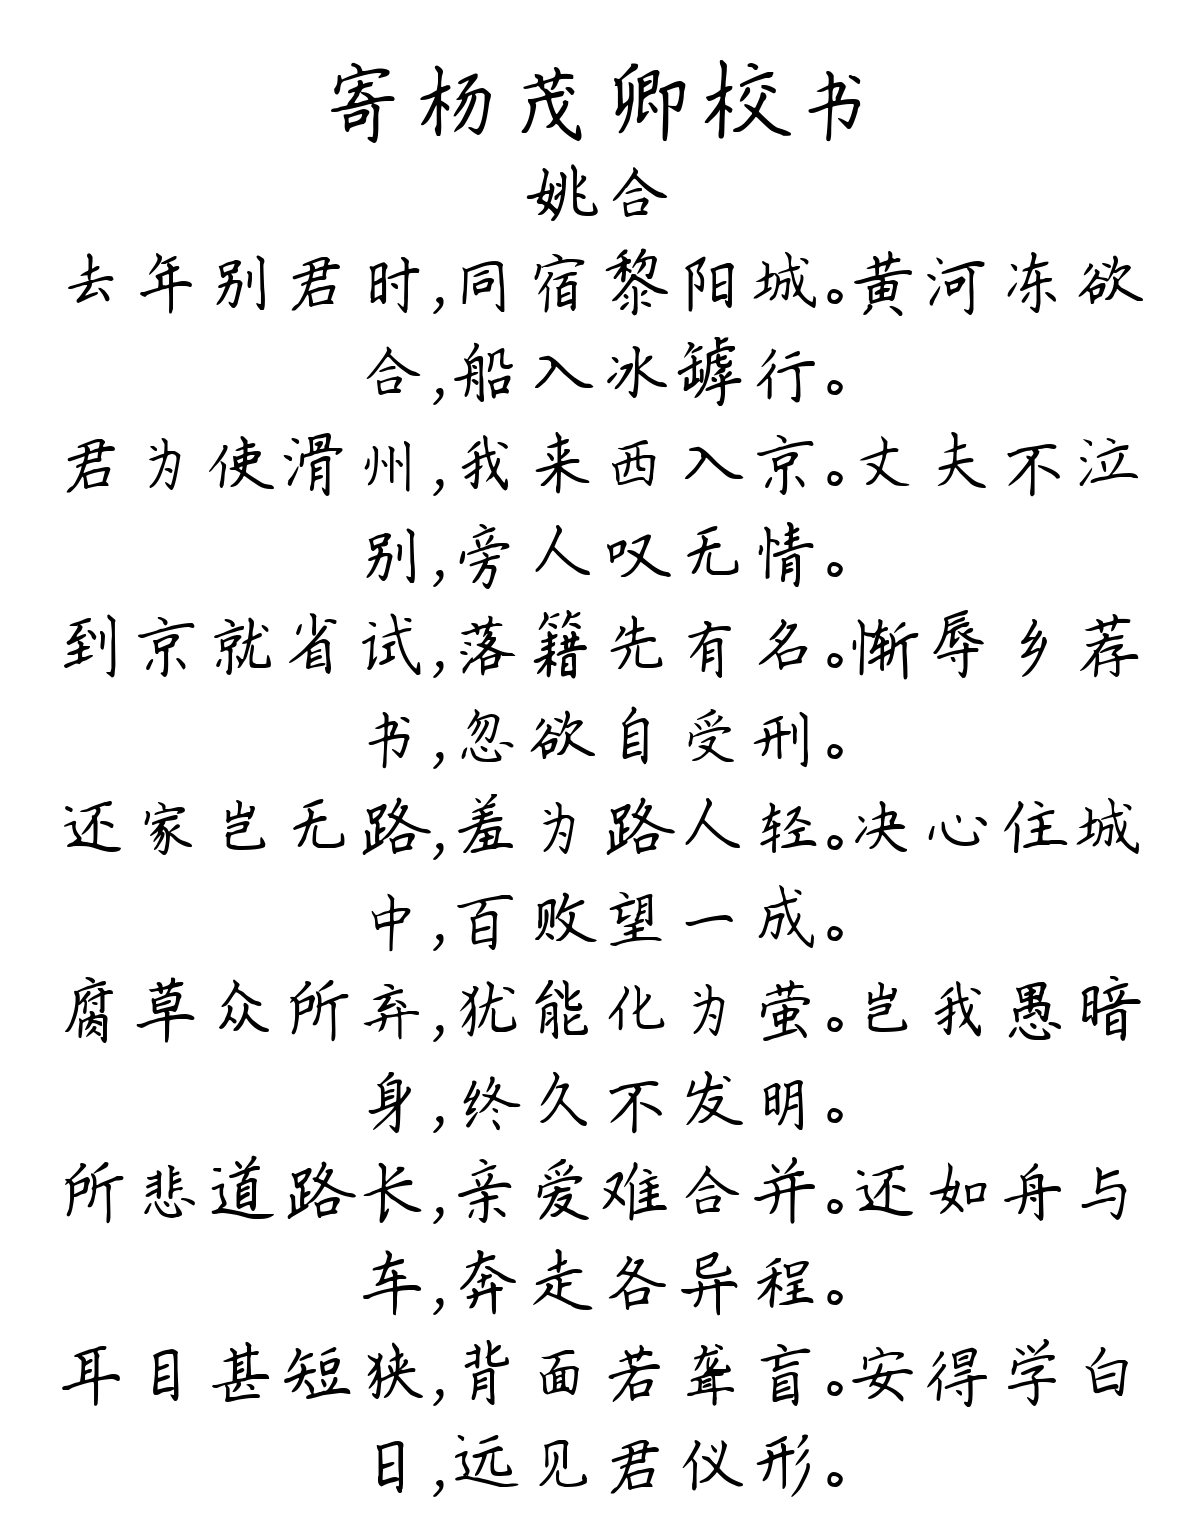 寄杨茂卿校书
姚合
去年别君时,同宿黎阳城。黄河冻欲
合,船入冰罅行。
君为使滑州,我来西入京。丈夫不泣
别,旁人叹无情。
到京就省试,落籍先有名。惭辱乡荐
书,忽欲自受刑。
还家岂无路,羞为路人轻。决心住城
中,百败望一成。
腐草众所弃,犹能化为萤。岂我愚暗
身,终久不发明。
所悲道路长,亲爱难合并。还如舟与
车,奔走各异程。
耳目甚短狭,背面若聋盲。安得学白
日,远见君仪形。